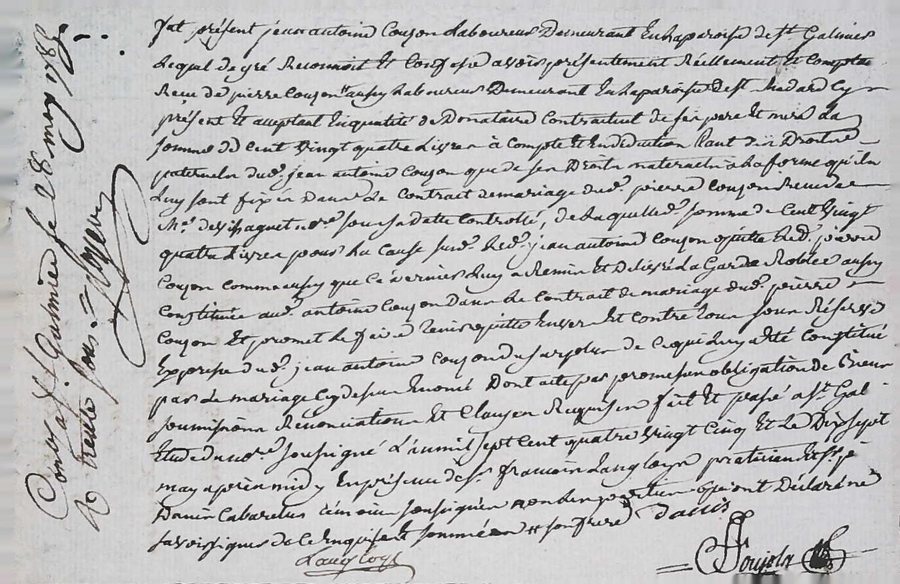 fut présent jean antoine Couzon Laboureur Demeurant En la paroisse de St. Galmier
Lequel de gré Reconnoit Et Confesse avoir présentement Réellement Et Comptant
Recu de pierre Couzon aussy Laboureur Demeurant En la paroisse de St. Medard Cy
présent Et acceptant En qualité de Donataire Contractuel de ses pere Et mere La
somme de Cent vingt quatre Livres à Compte Et En déduction tant des Droits
paternels dud. jean antoine Couzon que de ses Droits maternels à la forme qu'ils
Luy sont fixés Dans Le Contrat de mariage dud. pierre Couzon Recu de
Me. nore sous sa datte Controllé, de laquelle somme de Cent vingt
quatre Livres pour La Cause susd. Led. jean antoine Couzon quitte Led. pierre
Couzon Comme aussy que Ce dernier Luy a Remis Et Délivré La Garde Robbe aussy
Constituée aud. antoine Couzon Dans Le Contrat de mariage dud. pierre
Couzon Et promet Le faire tenir quitte Envers Et Contre tous sous Réserve
Expresse dud. jean antoine Couzon du surplus de Ce qui Luy a été Constitué
par Le mariage Cy dessus Enoncé Dont acte par promesse obligation de Biens
soumissions Renonciations Et Clauses Requises fait Et passé a St. Gal
Etude du nore soussigné L'an mil sept Cent quatre vingt Cinq Et Le Dix sept
may après midy En présence de Sr. françois Langlois praticien Et Sr.
Danis Cabaretier témoins soussignés non Les parties qui ont Déclaré ne
savoir signer de Ce Enquises Et sommées
Danis
Langloys
Controlé à St. Galmier le 28 may 1785
Rc treille sous